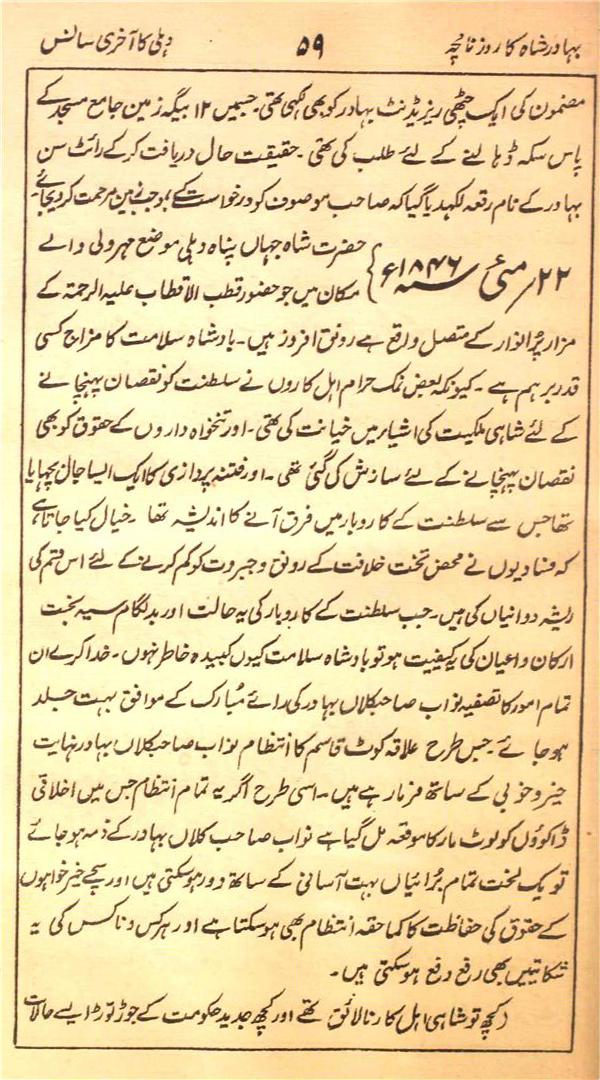 بہادر شاہ کا روزنامچہ ۵۹ دہلی کا آخری سانس
مضمون کی ایک چٹھی ریزیڈنٹ بہادر کو بھی لکھی تھی۔ جسمیں ۱۲ بیگہ زمین جامع مسجد کے
پاس سکہ ڈہالنے کے لئے طلب کی تھی۔ حقیقت حال دریافت کر کے رائٹ سن
بہادر کے نام رقعہ لکھدیا گیا کہ صاحب موصوف کو درخواست کے بموجب زمین مرحمت کر دیجائے۔
۲۲ مئی سنہ ۱۸۴۶ء } حضرت شاہ جہاں پناہ دہلی موضع مہرولی والے
مکان میں جو حضور قطب الاقطاب علیہ الرحمۃ کے
مزار پُر انوار کے متصل واقع ہے رونق افروز ہیں۔ بادشاہ سلامت کا مزاج کسی
قدر برہم ہے۔ کیونکہ بعض نمک حرام اہل کاروں نے سلطنت کو نقصان پہنچانے
کے لئے شاہی ملکیت کی اشیاء میں خیانت کی تھی۔ اور تنخواہ داروں کے حقوق کو بھی
نقصان پہنچانے کے لئے سازش کی گئی تھی۔ اور فتنہ پردازی کا ایک ایسا جال بچھایا
تھا جس سے سلطنت کے کاروبار میں فرق آنے کا اندیشہ تھا۔ خیال کیا جاتا ہے
کہ فسادیوں نے محض تخت خلافت کے رونق و جبروت کو کم کرنے کے لئے اس قسم کی
ریشہ دوانیاں کی ہیں۔ جب سلطنت کے کاروبار کی یہ حالت اور بدلگام سیہ بخت
ارکان و اعیان کی یہ کیفیت ہو تو بادشاہ سلامت کیوں کبیدہ خاطر نہوں۔ خدا کرے ان
تمام امور کا تصفیہ نواب صاحب کلاں بہادر کی رائے مُبارک کے موافق بہت جلد
ہو جائے۔ جس طرح علاقہ کوٹ قاسم کا انتظام نواب صاحب کلاں بہادر نہایت
خیر و خوبی کے ساتھ فرما رہے ہیں۔ اسی طرح اگر یہ تمام انتظام جس میں اخلاقی
ڈاکوؤں کو لوٹ مار کا موقعہ مل گیا ہے نواب صاحب کلاں بہادر کے ذمہ ہو جائے
تو یک لخت تمام بُرائیاں بہت آسانی کے ساتھ دور ہو سکتی ہیں اور سچے خیر خواہوں
کے حقوق کی حفاظت کا کماحقہ انتظام بھی ہو سکتا ہے اور ہر کس و ناکس کی یہ
شکایتیں بھی رفع دفع ہو سکتی ہیں۔
(کچھ تو شاہی اہل کار نالائق تھے اور کچھ جدید حکومت کے جوڑ توڑ ایسے حالات